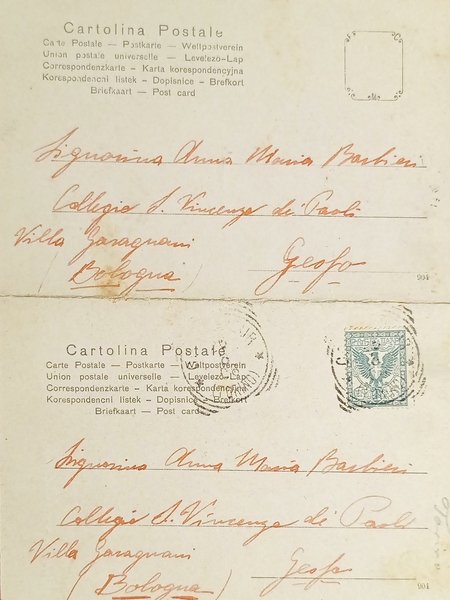 Cartolina Postale
Carte Postale — Postkarte — Weltpostverein
Union postale universelle — Levelezö-Lap
Correspondenzkarte — Karta korespondencyjna
Korespondencni listek — Dopisnice — Brefkort
Briefkaart — Post card
Signorina Anna Maria Barbieri
Collegio S. Vincenzo de Paoli
Villa Garagnani
(Bologna)
904
Cartolina Postale
Carte Postale — Postkarte — Weltpostverein
Union postale universelle — Levelezö-Lap
Correspondenzkarte — Karta korespondencyjna
Korespondencni listek — Dopisnice — Brefkort
Briefkaart — Post card
Signorina Anna Maria Barbieri
Collegio S. Vincenzo de Paoli
Villa Garagnani
(Bologna)
904